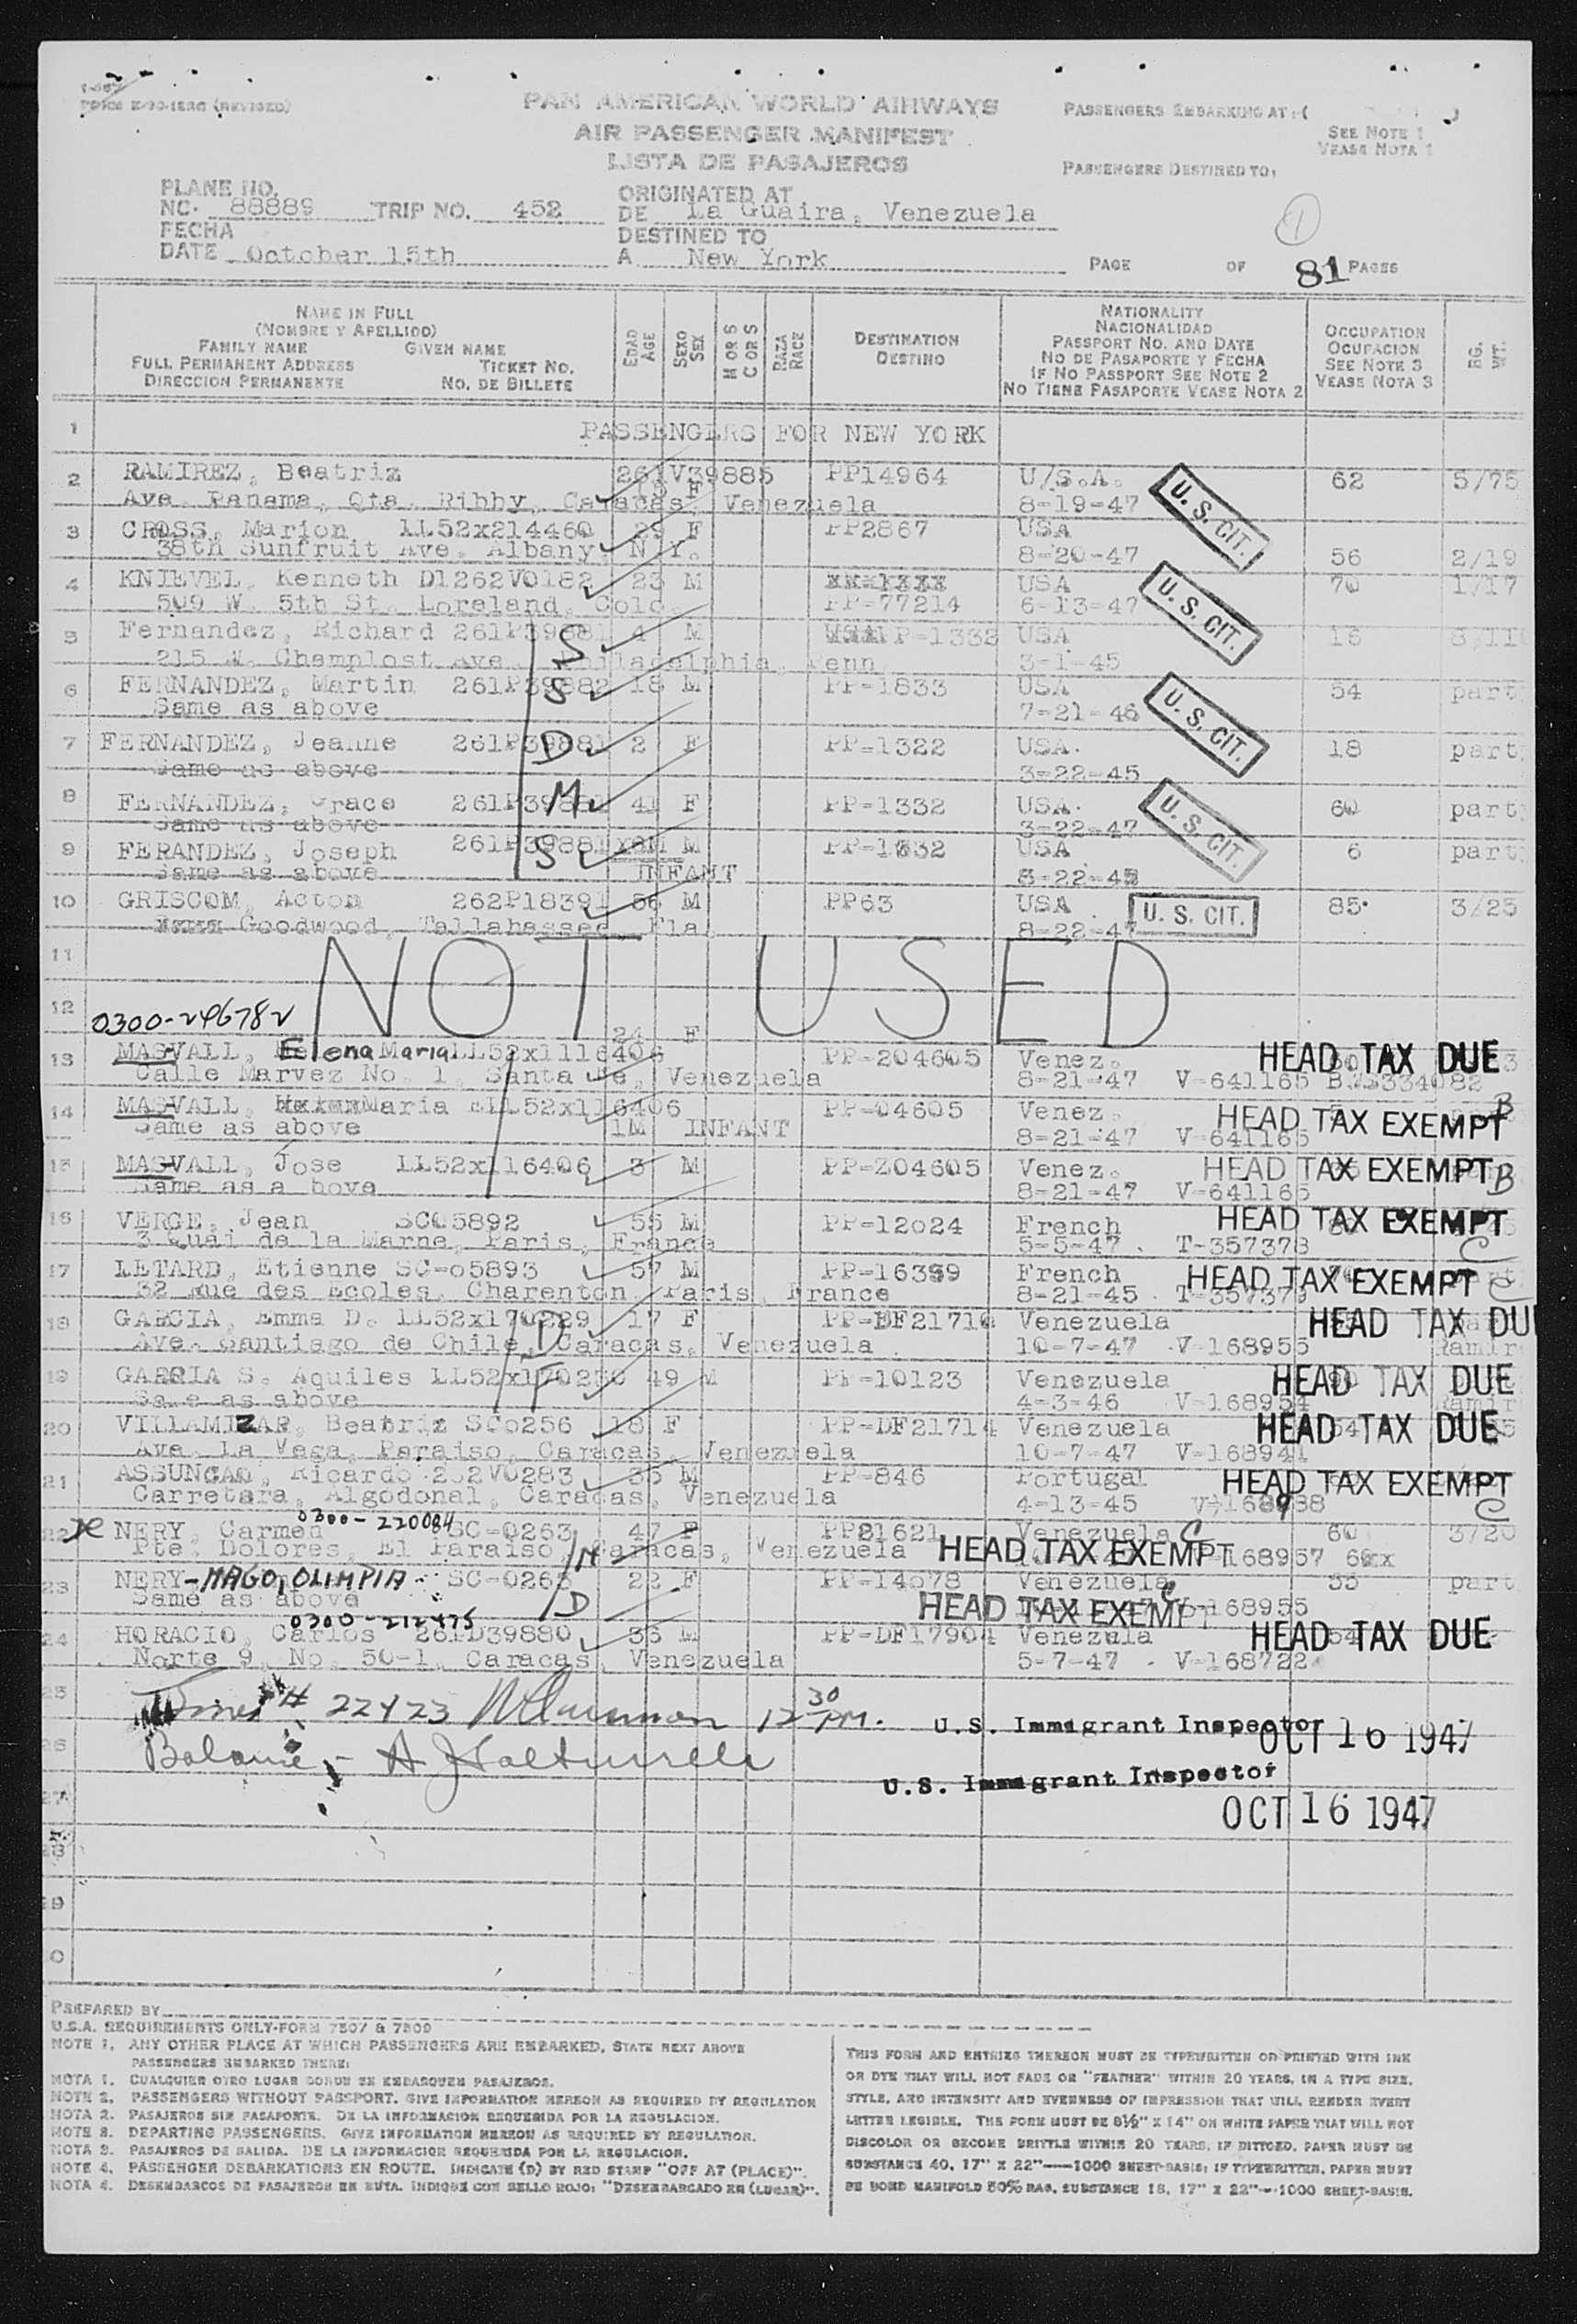 PAN AMERICAN WORLD AIRWAYS
AIR PASSENGER MANIFEST
LISTA DE PASAJEROS
PASSENGERS EMBARKING AT:
SEE NOTE 1
VEASE NOTA 1
PASSENGERS DESTINED TO:
PLANE NO.
NC- 88889 TRIP NO. 452
FECHA
DATE October 15th
ORIGINATED AT
DE La Guaira, Venezuela
DESTINED TO
A New York
1
PAGE OF 81 PAGES
NAME IN FULL
(NOMBRE Y APELLIDO)
FAMILY NAME GIVEN NAME
FULL PERMANENT ADDRESS TICKET NO.
DIRECCION PERMANENTE NO. DE BILLETE
EDAD AGE
SEXO SEX
M OR S C OR S
RAZA RACE
DESTINATION
DESTINO
NATIONALITY
NACIONALIDAD
PASSPORT NO. AND DATE
NO DE PASAPORTE Y FECHA
IF NO PASSPORT SEE NOTE 2
NO TIENE PASAPORTE VEASE NOTA 2
OCCUPATION
OCUPACION
SEE NOTE 3
VEASE NOTA 3
BG. WT.
1 PASSENGERS FOR NEW YORK
2 RAMIREZ, Beatriz 261V39885 PP14964 U.S.A. 62 5/75
F
Ave. Panama, Qta. Ribby, Caracas, Venezuela 8-19-47 U. S. CIT.
3 CROSS, Marion LL52x214460 29 F PP2867 USA
38th Sunfruit Ave. Albany, N.Y. 8-20-47 56 2/19
4 KNIEVEL, Kenneth D1262V0182 23 M USA 70 1/17
509 W. 5th St. Loreland, Colo. PP-77214 6-13-47 U. S. CIT.
5 Fernandez, Richard 261P39881 4 M PP-1333 USA 16
215 W. Champlost Ave. Philadelphia, Penn 3-1-45
S
6 FERNANDEZ, Martin 261P39882 18 M PP-1833 USA 54 part
Same as above 7-21-46 U. S. CIT.
S
7 FERNANDEZ, Jeanne 261P39881 2 F PP-1322 USA. 18 part
Same as above 3-22-45
D
8 FERNANDEZ, Grace 261P39881 41 F PP-1332 USA. 60 part
Same as above 3-22-47 U. S. CIT.
M
9 FERANDEZ, Joseph 261P39881 M PP-1332 USA 6 part
Same as above INFANT
S
10 GRISCOM, Acton 262P18391 56 M PP63 USA U. S. CIT. 85 3/25
Goodwood, Tallahassee, Fla. 8-22-47
11
NOT USED
12
0300-246782
24 F
13 MASVALL, Elena Maria LL52x1116406 PP-204605 Venez. HEAD TAX DUE
Calle Marvez No. 1, Santa Fe, Venezuela 8-21-47 V-641165
14 MASVALL, Maria LL52x116406 PP-04605 Venez. HEAD TAX EXEMPT B
Same as above 1M INFANT 8-21-47 V-641165
15 MASVALL, Jose LL52x116406 3 M PP-204605 Venez. HEAD TAX EXEMPT B
Same as a bove 8-21-47 V-641165
16 VERGE, Jean SC05892 55 M PP-12024 French HEAD TAX EXEMPT
3 Quai de la Marne, Paris, France 5-5-47 T-357378 C
17 LETARD, Etienne SC-o5893 57 M PP-16399 French HEAD TAX EXEMPT C
32 Rue des Ecoles, Charenton, Paris, France 8-21-45 T-357379
18 GARCIA, Emma D. LL52x170229 17 F PP-DF21710 Venezuela HEAD TAX DU
Ave. Santiago de Chile, Caracas, Venezuela 10-7-47 V-168955
D
19 GARCIA S. Aquiles LL52x170230 49 M PP-10123 Venezuela HEAD TAX DUE
Same as above 4-3-46 V-168954
F
20 VILLAMIZAR, Beatriz SC0256 18 F PP-DF21714 Venezuela HEAD TAX DUE
Ave. La Vega, Paraiso, Caracas, Venezuela 10-7-47 V-168941
21 ASSUNCAO, Ricardo 262V0283 35 M PP-846 Portugal HEAD TAX EXEMPT
Carretara, Algodonal, Caracas, Venezuela 4-13-45 C
0300-220084
22 NERY, Carmen SC-0263 47 F PP81621 Venezuela C 60 3/20
Pte. Dolores, El Paraiso, Caracas, Venezuela HEAD TAX EXEMPT 168957
M
23 NERY-MAGO, OLIMPIA SC-0263 22 F PP-14578 Venezuela C 55 part
Same as above HEAD TAX EXEMPT 168955
D
0300-212475
24 HORACIO, Carlos 261PD39880 36 M PP-DF17904 Venezula HEAD TAX DUE
Norte 9, No. 50-1, Caracas, Venezuela 5-7-47 V-168722
25 # 22423 12 30 PM. U.S. Immigrant Inspector
OCT 16 1947
26
U.S. Immigrant Inspector
27
OCT 16 1947
PREPARED BY
U.S.A. REQUIREMENTS ONLY-FORM 7507 & 7509
NOTE 1. ANY OTHER PLACE AT WHICH PASSENGERS ARE EMBARKED, STATE NEXT ABOVE
PASSENGERS EMBARKED THERE:
NOTA 1. CUALQUIER OTRO LUGAR DONDE SE EMBARQUEN PASAJEROS.
NOTE 2. PASSENGERS WITHOUT PASSPORT. GIVE INFORMATION HEREON AS REQUIRED BY REGULATION
NOTA 2. PASAJEROS SIN PASAPORTE. DE LA INFORMACION REQUERIDA POR LA REGULACION.
NOTE 3. DEPARTING PASSENGERS. GIVE INFORMATION HEREON AS REQUIRED BY REGULATION.
NOTA 3. PASAJEROS DE SALIDA. DE LA INFORMACION REQUERIDA POR LA REGULACION.
NOTE 4. PASSENGER DEBARKATIONS EN ROUTE. INDICATE (D) BY RED STAMP "OFF AT (PLACE)".
NOTA 4. DESEMBARCOS DE PASAJEROS EN RUTA. INDIQUE CON SELLO ROJO: "DESEMBARGADO EN (LUGAR)".
THIS FORM AND ENTRIES THEREON MUST BE TYPEWRITTEN OR PRINTED WITH INK
OR DYE THAT WILL NOT FADE OR "FEATHER" WITHIN 20 YEARS, IN A TYPE SIZE,
STYLE, AND INTENSITY AND EVENNESS OF IMPRESSION THAT WILL RENDER EVERY
LETTER LEGIBLE. THE FORM MUST BE 8½" X 14" ON WHITE PAPER THAT WILL NOT
DISCOLOR OR BECOME BRITTLE WITHIN 20 YEARS. IF DITTOED, PAPER MUST BE
SUBSTANCE 40, 17" X 22"—1000 SHEET-BASIS; IF TYPEWRITTEN, PAPER MUST
BE BOND MANIFOLD 50% RAG, SUBSTANCE 18, 17" X 22"—1000 SHEET-BASIS.